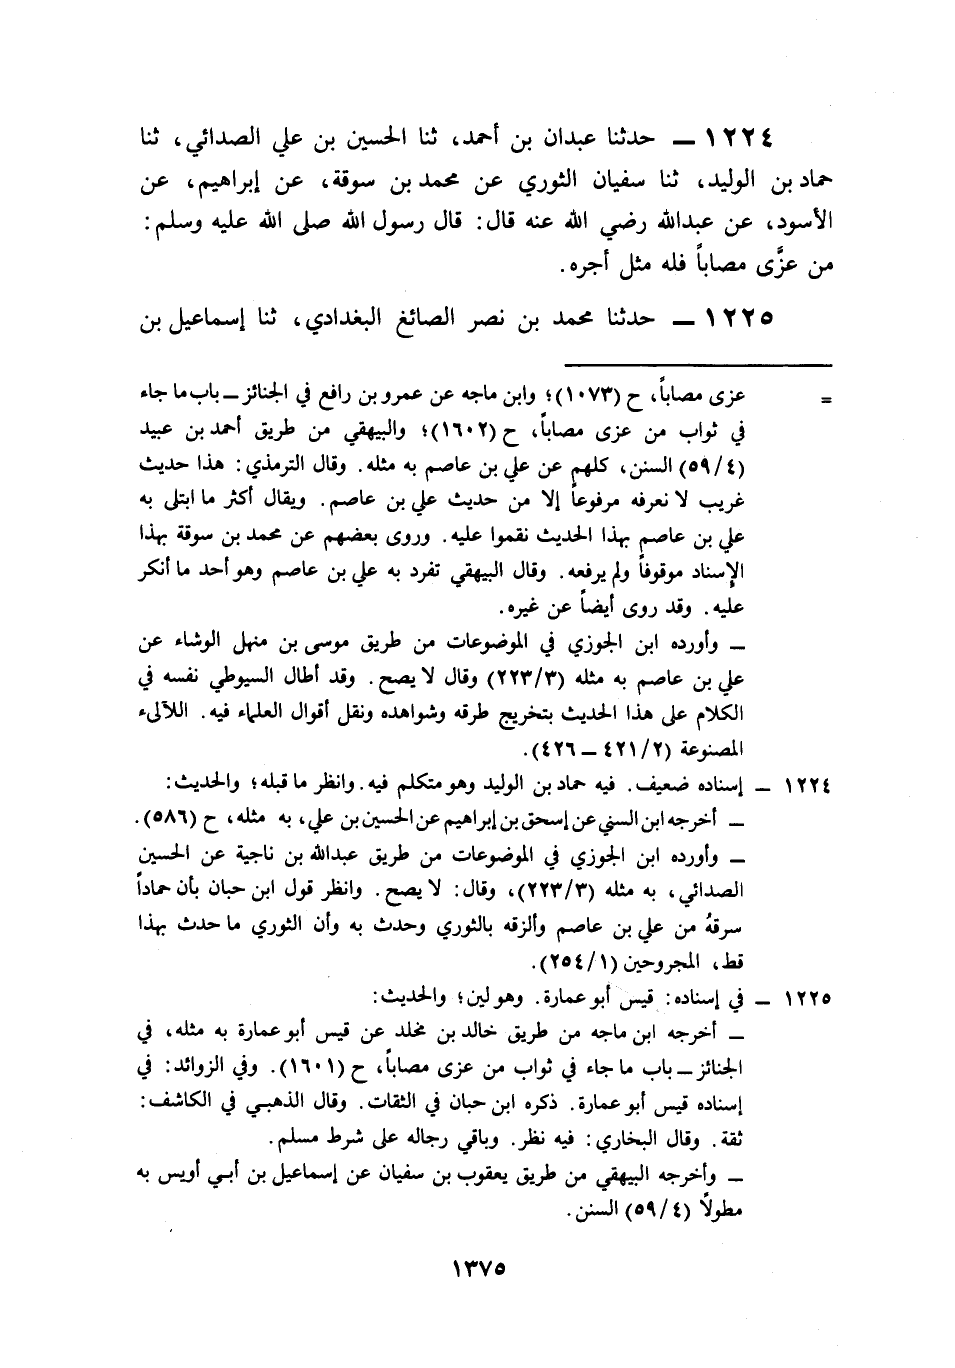 ١٢٢٤ ــ حدثنا عبدان بن أحمد، ثنا الحسين بن علي الصدائي، ثنا
حماد بن الوليد، ثنا سفيان الثوري عن محمد بن سوقة، عن إبراهيم، عن
الأسود، عن عبدالله رضي الله عنه قال: قال رسول الله صلى الله عليه وسلم:
من عزَّى مصاباً فله مثل أجره.
١٢٢٥ ــ حدثنا محمد بن نصر الصائغ البغدادي، ثنا إسماعيل بن
= عزى مصاباً، ح (١٠٧٣)؛ وابن ماجه عن عمرو بن رافع في الجنائز ــ باب ما جاء
في ثواب من عزى مصاباً، ح (١٦٠٢)؛ والبيهقي من طريق أحمد بن عبيد
(٥٩/٤) السنن، كلهم عن علي بن عاصم به مثله. وقال الترمذي: هذا حديث
غريب لا نعرفه مرفوعاً إلا من حديث علي بن عاصم. ويقال أكثر ما ابتلى به
علي بن عاصم بهذا الحديث نقموا عليه. وروى بعضهم عن محمد بن سوقة بهذا
الإسناد موقوفاً ولم يرفعه. وقال البيهقي تفرد به علي بن عاصم وهو أحد ما أنكر
عليه. وقد روى أيضاً عن غيره.
ــ وأورده ابن الجوزي في الموضوعات من طريق موسى بن منهل الوشاء عن
علي بن عاصم به مثله (٢٢٣/٣) وقال لا يصح. وقد أطال السيوطي نفسه في
الكلام على هذا الحديث بتخريج طرقه وشواهده ونقل أقوال العلماء فيه. اللآلىء
المصنوعة (٤٢١/٢ ــ ٤٢٦).
١٢٢٤ ــ إسناده ضعيف. فيه حماد بن الوليد وهو متكلم فيه. وانظر ما قبله؛ والحديث:
ــ أخرجه ابن السني عن إسحق بن إبراهيم عن الحسين بن علي، به مثله، ح (٥٨٦).
ــ وأورده ابن الجوزي في الموضوعات من طريق عبدالله بن ناجية عن الحسين
الصدائي، به مثله (٢٢٣/٣)، وقال: لا يصح. وانظر قول ابن حبان بأن حماداً
سرقهُ من علي بن عاصم وألزقه بالثوري وحدث به وأن الثوري ما حدث بهذا
قط، المجروحين (٢٥٤/١).
١٢٢٥ ــ في إسناده: قيس أبو عمارة. وهو لين؛ والحديث:
ــ أخرجه ابن ماجه من طريق خالد بن مخلد عن قيس أبو عمارة به مثله، في
الجنائز ــ باب ما جاء في ثواب من عزى مصاباً، ح (١٦٠١). وفي الزوائد: في
إسناده قيس أبو عمارة. ذكره ابن حبان في الثقات. وقال الذهبي في الكاشف:
ثقة. وقال البخاري: فيه نظر. وباقي رجاله على شرط مسلم.
ــ وأخرجه البيهقي من طريق يعقوب بن سفيان عن إسماعيل بن أبي أويس به
مطولاً (٥٩/٤) السنن.
١٣٧٥